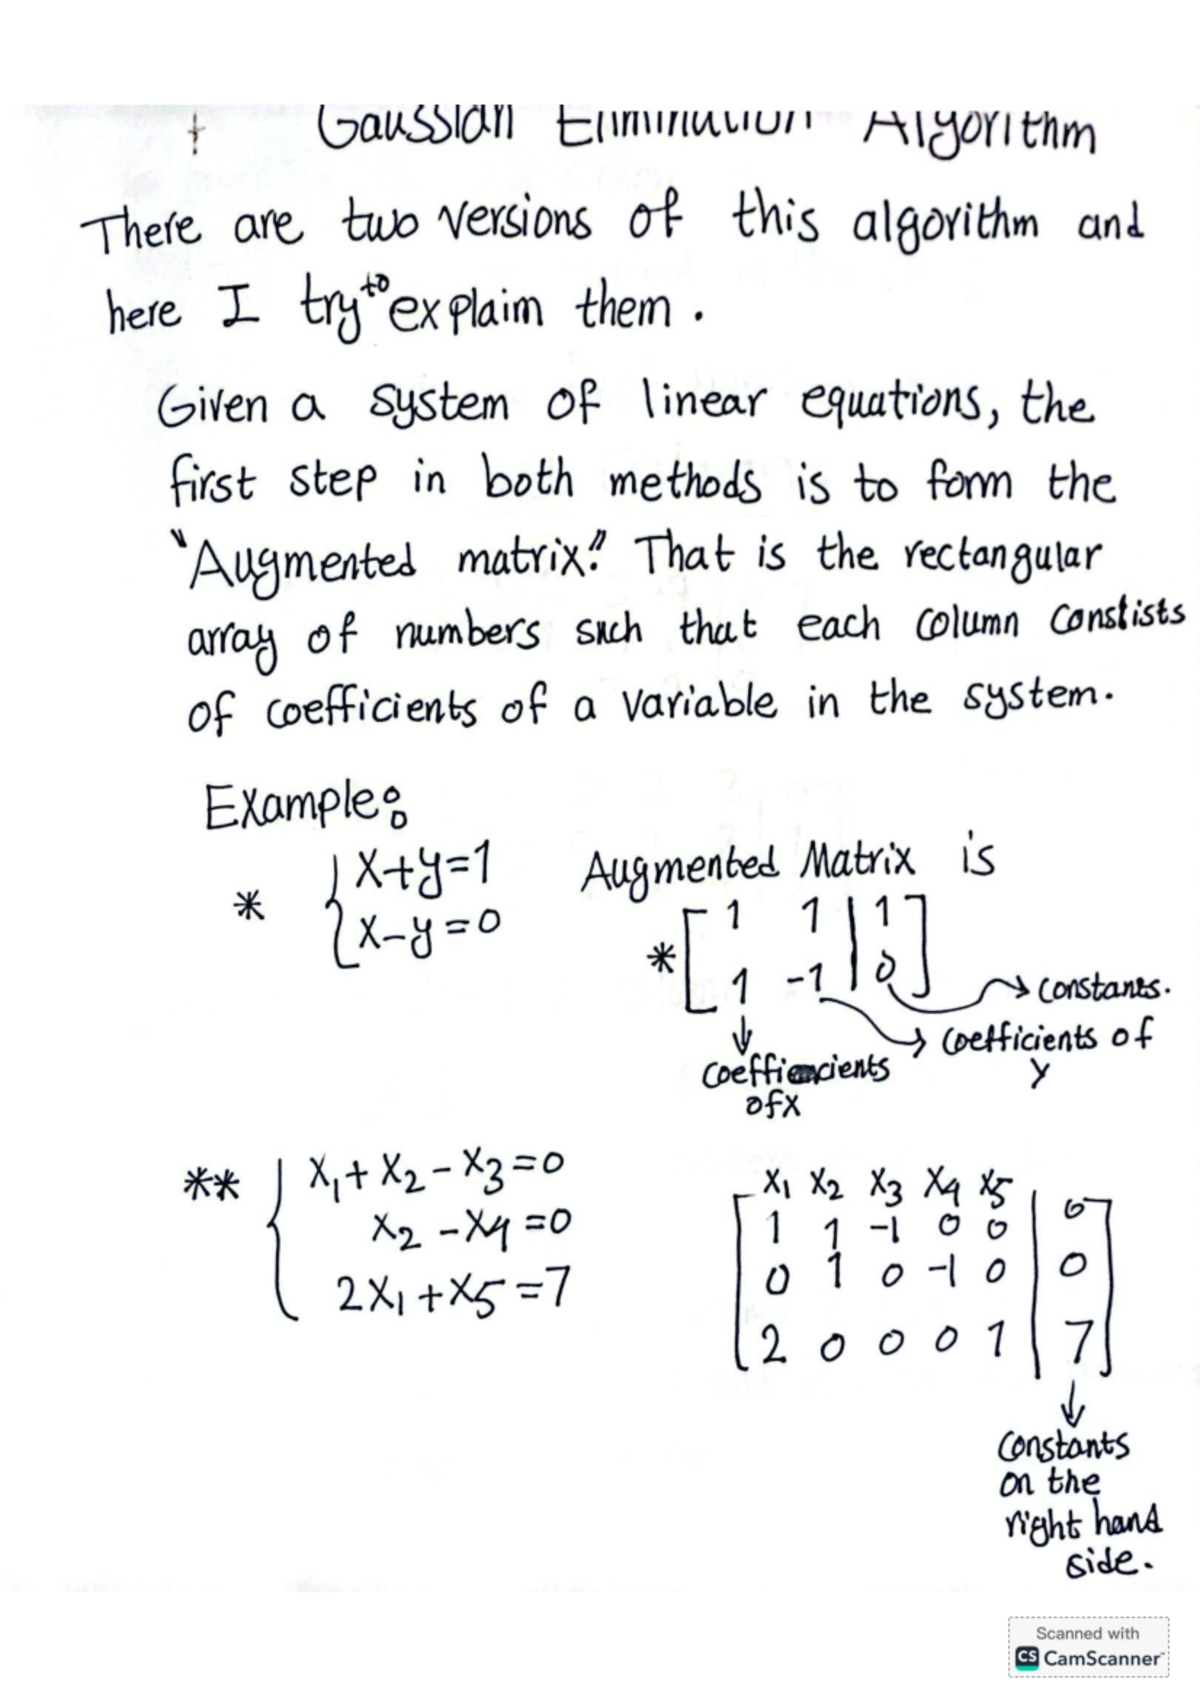 Gaussian Elimination Algorithm
There are two versions of this algorithm and
here I try to explaim them.
Given a system of linear equations, the
first step in both methods is to form the
"Augmented matrix." That is the rectangular
array of numbers such that each column constists
of coefficients of a variable in the system.
Example:
* { x+y=1
x-y=0
Augmented Matrix is
* [ 1 1 | 1 ]
1 -1 | 0
→ constants.
→ coefficients of
y
↓
coefficients
of x
** { x₁+x₂-x₃=0
x₂-x₄=0
2x₁+x₅=7
x₁ x₂ x₃ x₄ x₅
1 1 -1 0 0 | 0
0 1 0 -1 0 | 0
2 0 0 0 1 | 7
↓
Constants
on the
right hand
side.
Scanned with
CS CamScanner™